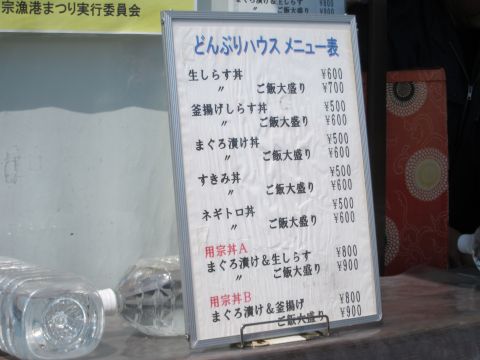 宗漁港まつり実行委員会
どんぶりハウス メニュー表
生しらす丼 ¥600
〃 ご飯大盛り ¥700
釜揚げしらす丼 ¥500
〃 ご飯大盛り ¥600
まぐろ漬け丼 ¥500
〃 ご飯大盛り ¥600
すきみ丼 ¥500
〃 ご飯大盛り ¥600
ネギトロ丼 ¥500
〃 ご飯大盛り ¥600
用宗丼A
まぐろ漬け&生しらす ¥800
〃 ご飯大盛り ¥900
用宗丼B
まぐろ漬け&釜揚げ ¥800
〃 ご飯大盛り ¥900